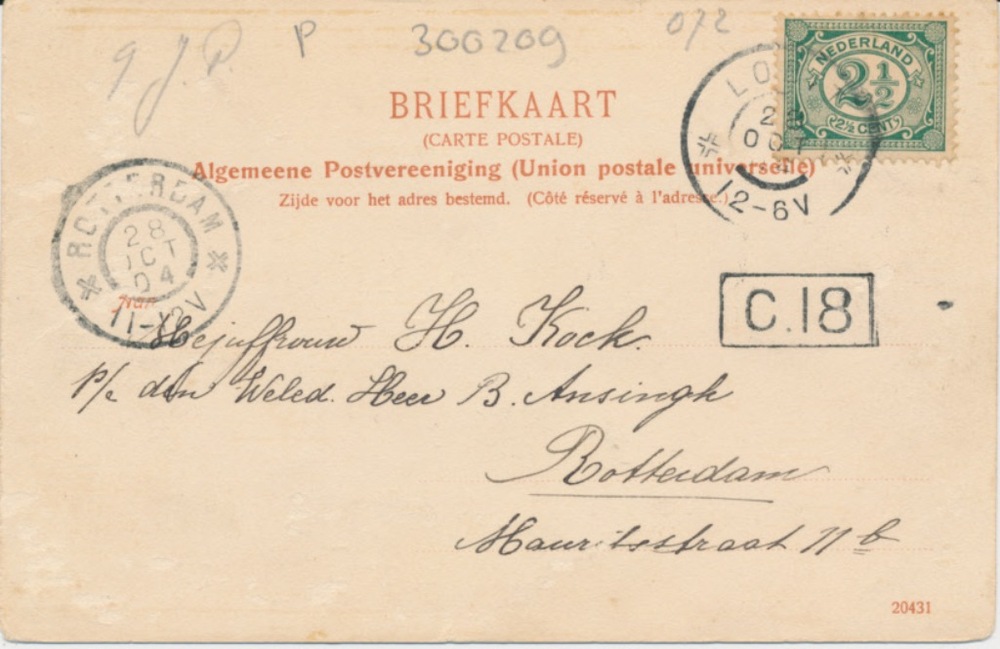 g J.P. P 300209 072
NEDERLAND
2 1/2
(2½ CENT)
BRIEFKAART
(CARTE POSTALE)
Algemeene Postvereeniging (Union postale universelle)
Zijde voor het adres bestemd. (Côté réservé à l'adresse.)
OCT
12-6V
ROTTERDAM
28
OCT
04
11-12V
C.18
Aan
Mejuffrouw H. Kock.
P/a den Weled. Heer B. Ansingh
Rotterdam
Mauritsstraat 11 b
20431